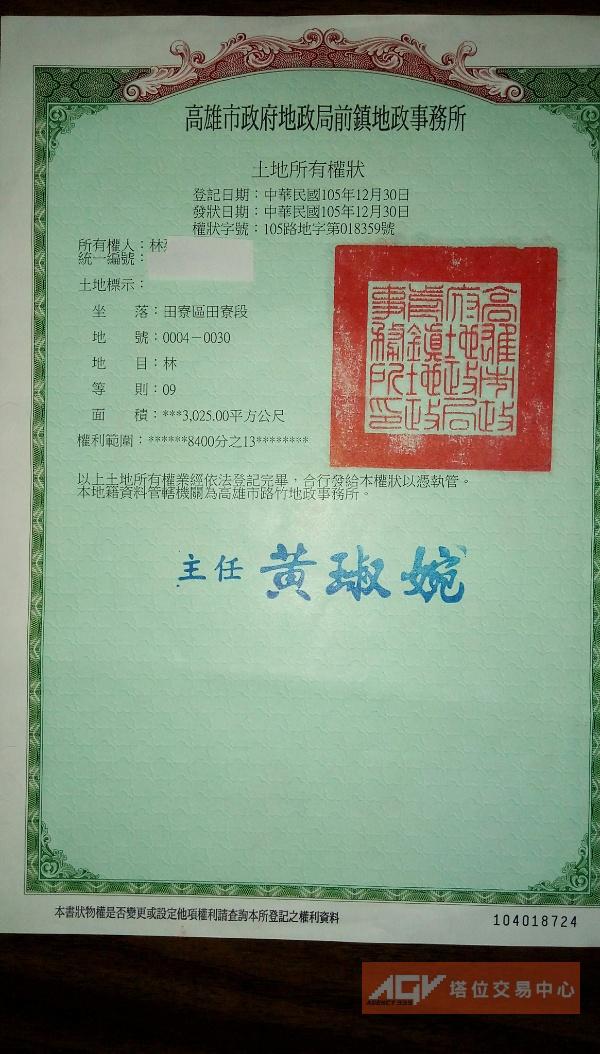 高雄市政府地政局前鎮地政事務所
土地所有權狀
登記日期：中華民國105年12月30日
發狀日期：中華民國105年12月30日
權狀字號：105路地字第018359號
所有權人：林
統一編號：
土地標示：
坐落：田寮區田寮段
地號：0004－0030
地目：林
等則：09
面積：***3,025.00平方公尺
權利範圍：******8400分之13********
高雄市政
府地政局
前鎮地政
事務所印
以上土地所有權業經依法登記完畢，合行發給本權狀以憑執管。
本地籍資料管轄機關為高雄市路竹地政事務所。
主任 黃琡婉
本書狀物權是否變更或設定他項權利請查詢本所登記之權利資料
104018724
AGV 塔位交易中心